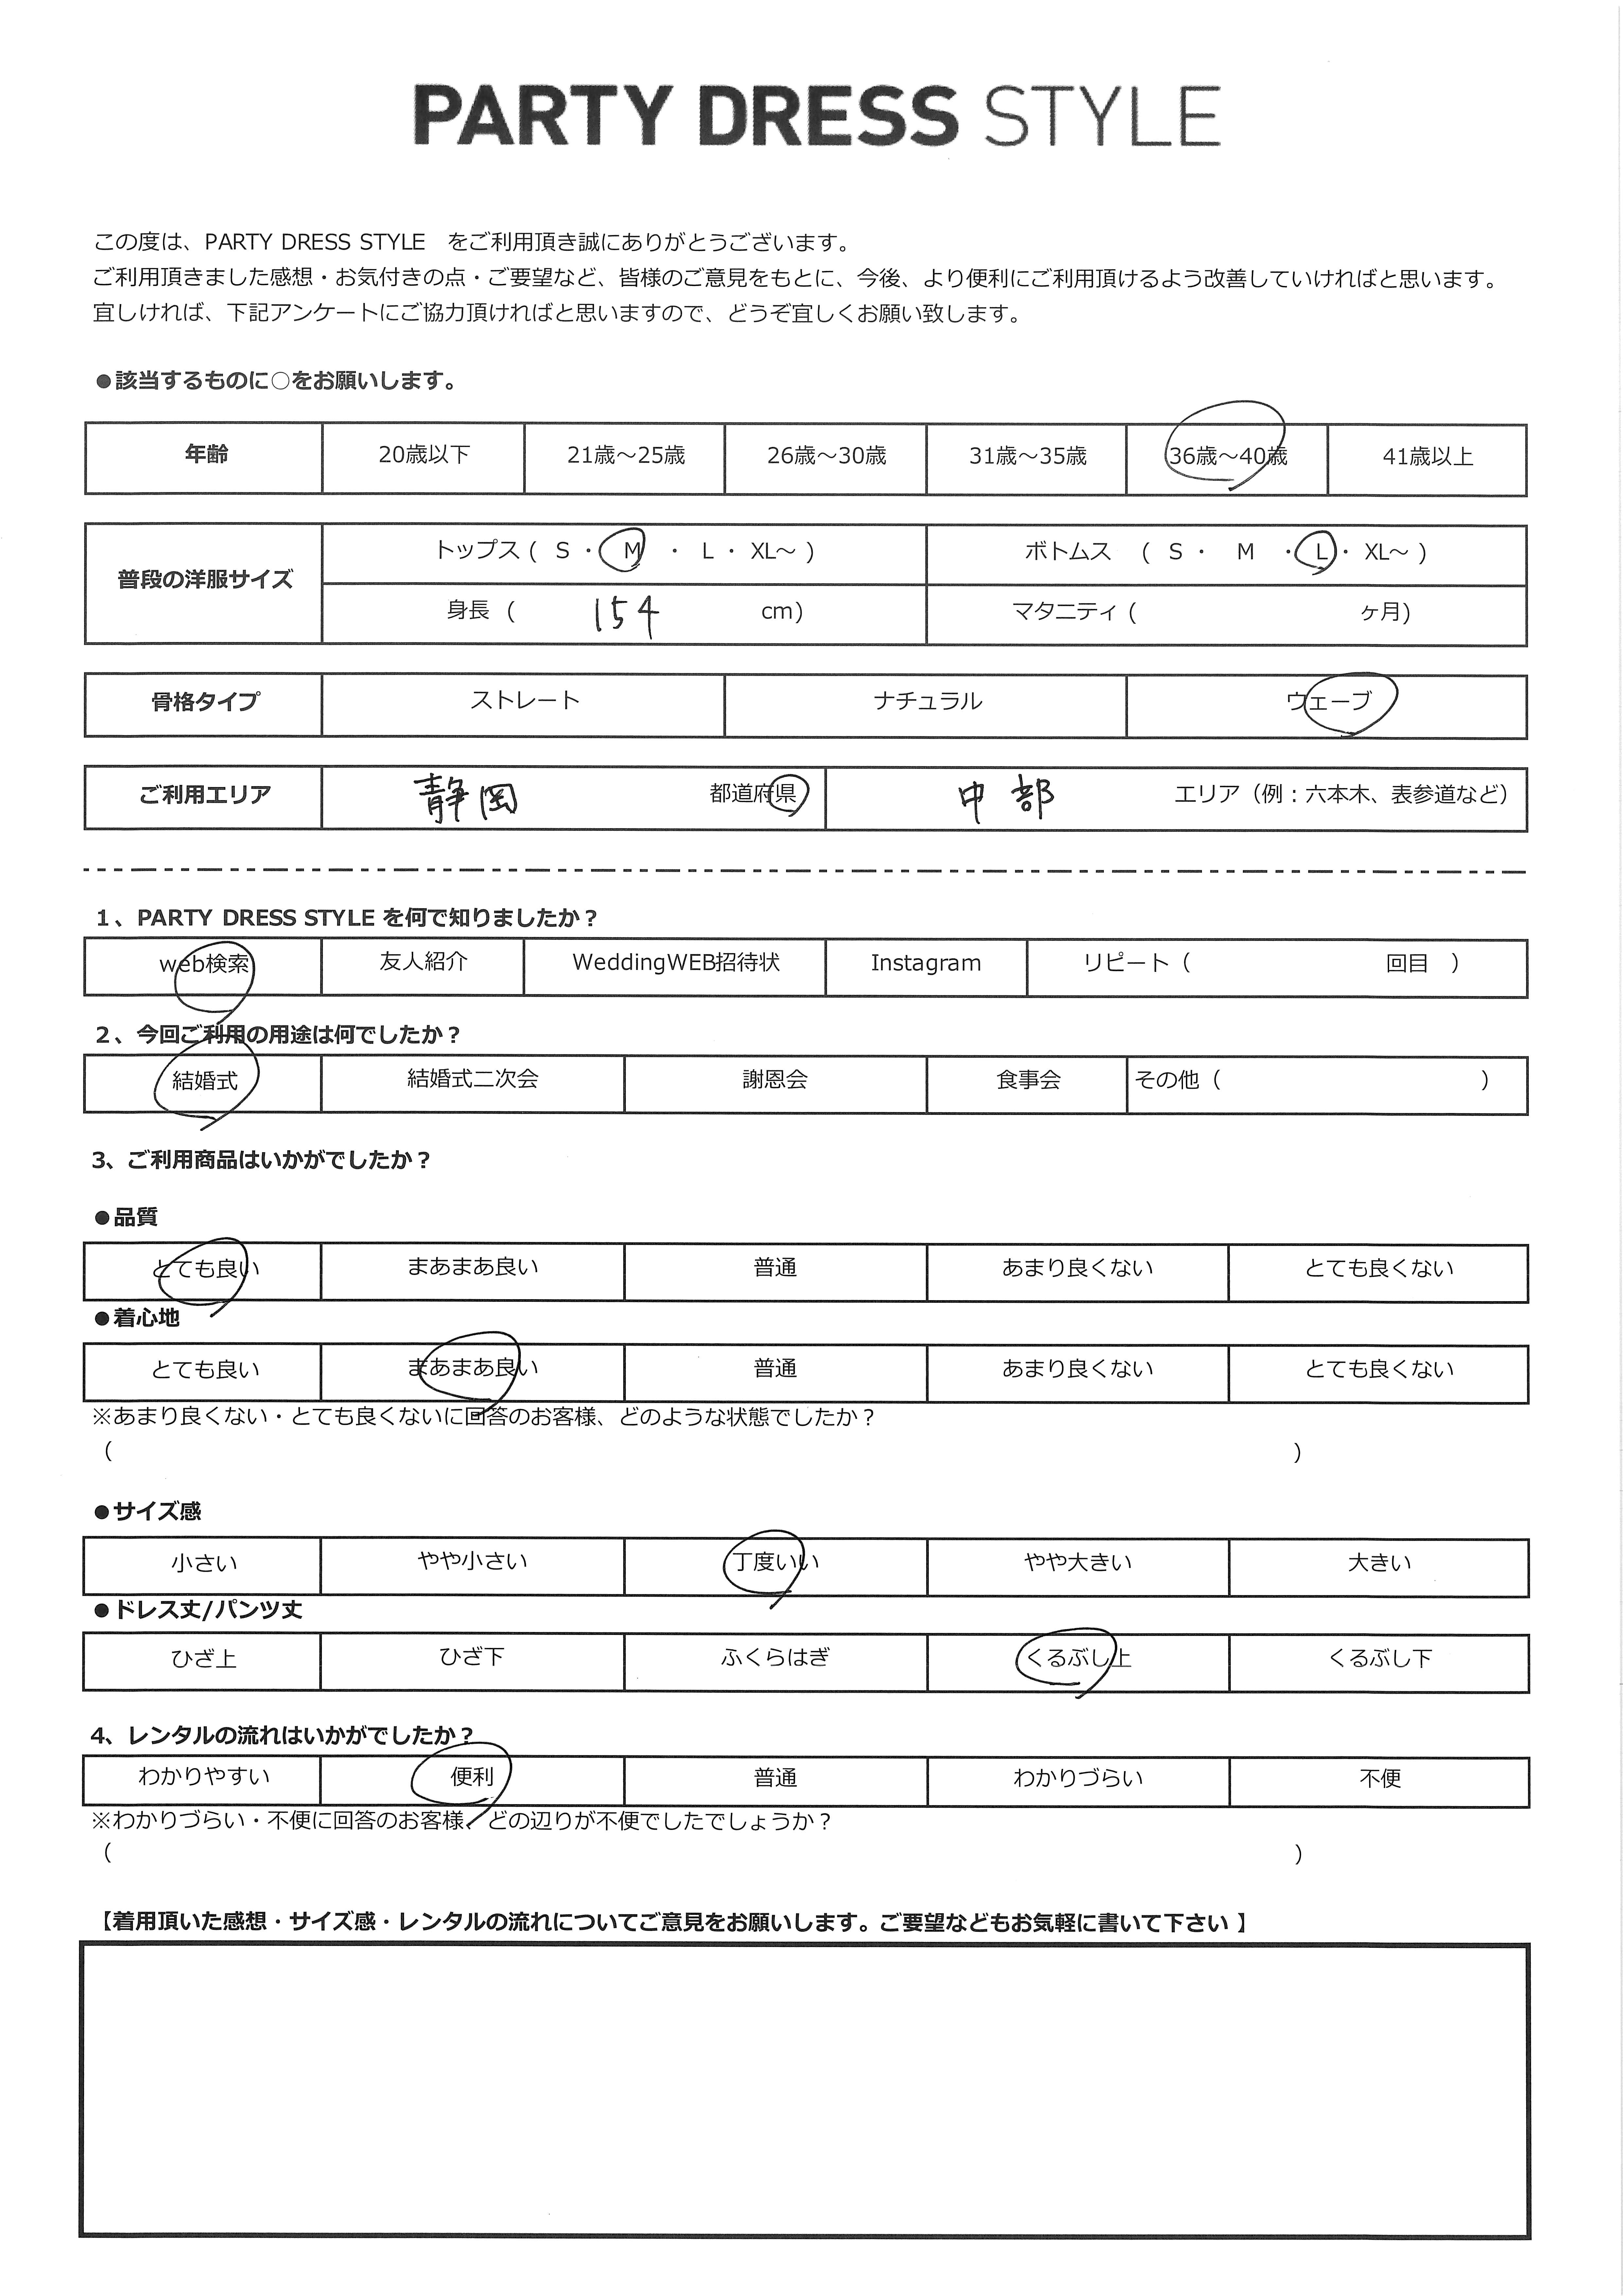 PARTY DRESS STYLE
この度は、PARTY DRESS STYLE　をご利用頂き誠にありがとうございます。
ご利用頂きました感想・お気付きの点・ご要望など、皆様のご意見をもとに、今後、より便利にご利用頂けるよう改善していければと思います。
宜しければ、下記アンケートにご協力頂ければと思いますので、どうぞ宜しくお願い致します。
●該当するものに○をお願いします。
年齢 20歳以下 21歳～25歳 26歳～30歳 31歳～35歳 36歳～40歳 41歳以上
普段の洋服サイズ トップス ( S ・ M ・ L ・ XL～ ) ボトムス ( S ・ M ・ L ・ XL～ )
身長 ( 154 cm) マタニティ ( ヶ月)
骨格タイプ ストレート ナチュラル ウェーブ
ご利用エリア 静岡 都道府県 中部 エリア（例：六本木、表参道など）
1、PARTY DRESS STYLE を何で知りましたか？
web検索 友人紹介 WeddingWEB招待状 Instagram リピート（ 回目 ）
2、今回ご利用の用途は何でしたか？
結婚式 結婚式二次会 謝恩会 食事会 その他（ ）
3、ご利用商品はいかがでしたか？
●品質
とても良い まあまあ良い 普通 あまり良くない とても良くない
●着心地
とても良い まあまあ良い 普通 あまり良くない とても良くない
※あまり良くない・とても良くないに回答のお客様、どのような状態でしたか？
（ ）
●サイズ感
小さい やや小さい 丁度いい やや大きい 大きい
●ドレス丈/パンツ丈
ひざ上 ひざ下 ふくらはぎ くるぶし上 くるぶし下
4、レンタルの流れはいかがでしたか？
わかりやすい 便利 普通 わかりづらい 不便
※わかりづらい・不便に回答のお客様、どの辺りが不便でしたでしょうか？
（ ）
【着用頂いた感想・サイズ感・レンタルの流れについてご意見をお願いします。ご要望などもお気軽に書いて下さい 】